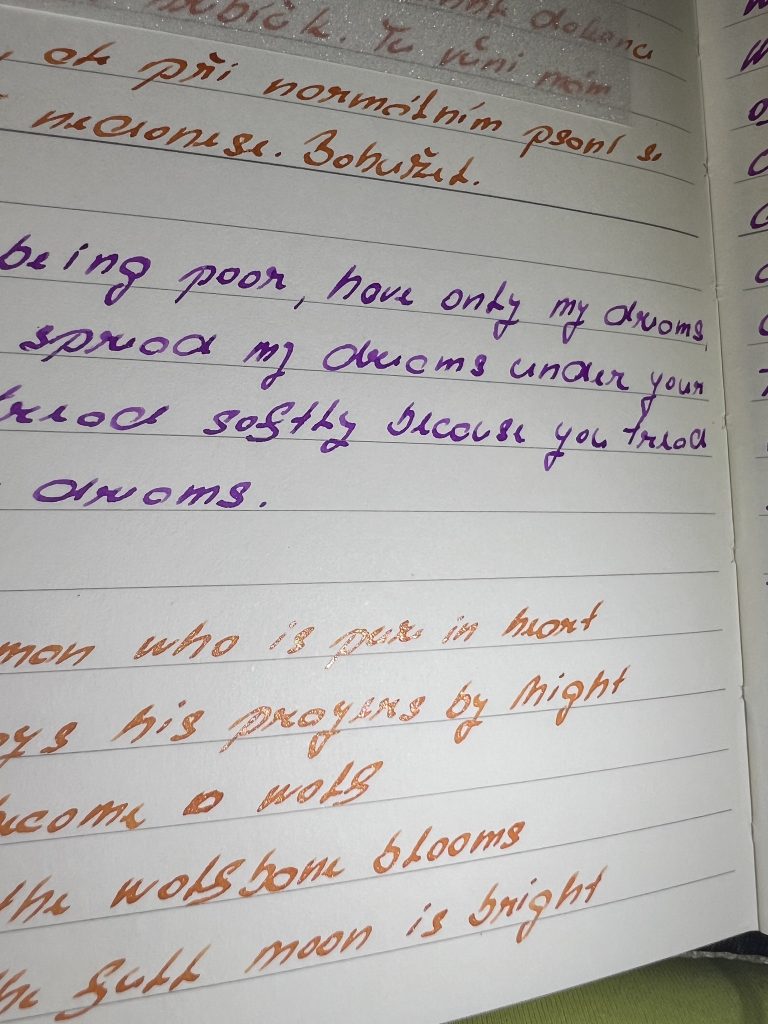 dokonce
Tu vůni mám
při normálním psaní se
nedonese. Bohužel.
being poor, have only my dreams,
spread my dreams under your
tread softly because you tread
dreams.
man who is pure in heart
his prayers by night
become a wolf
the wolfsbane blooms
the full moon is bright